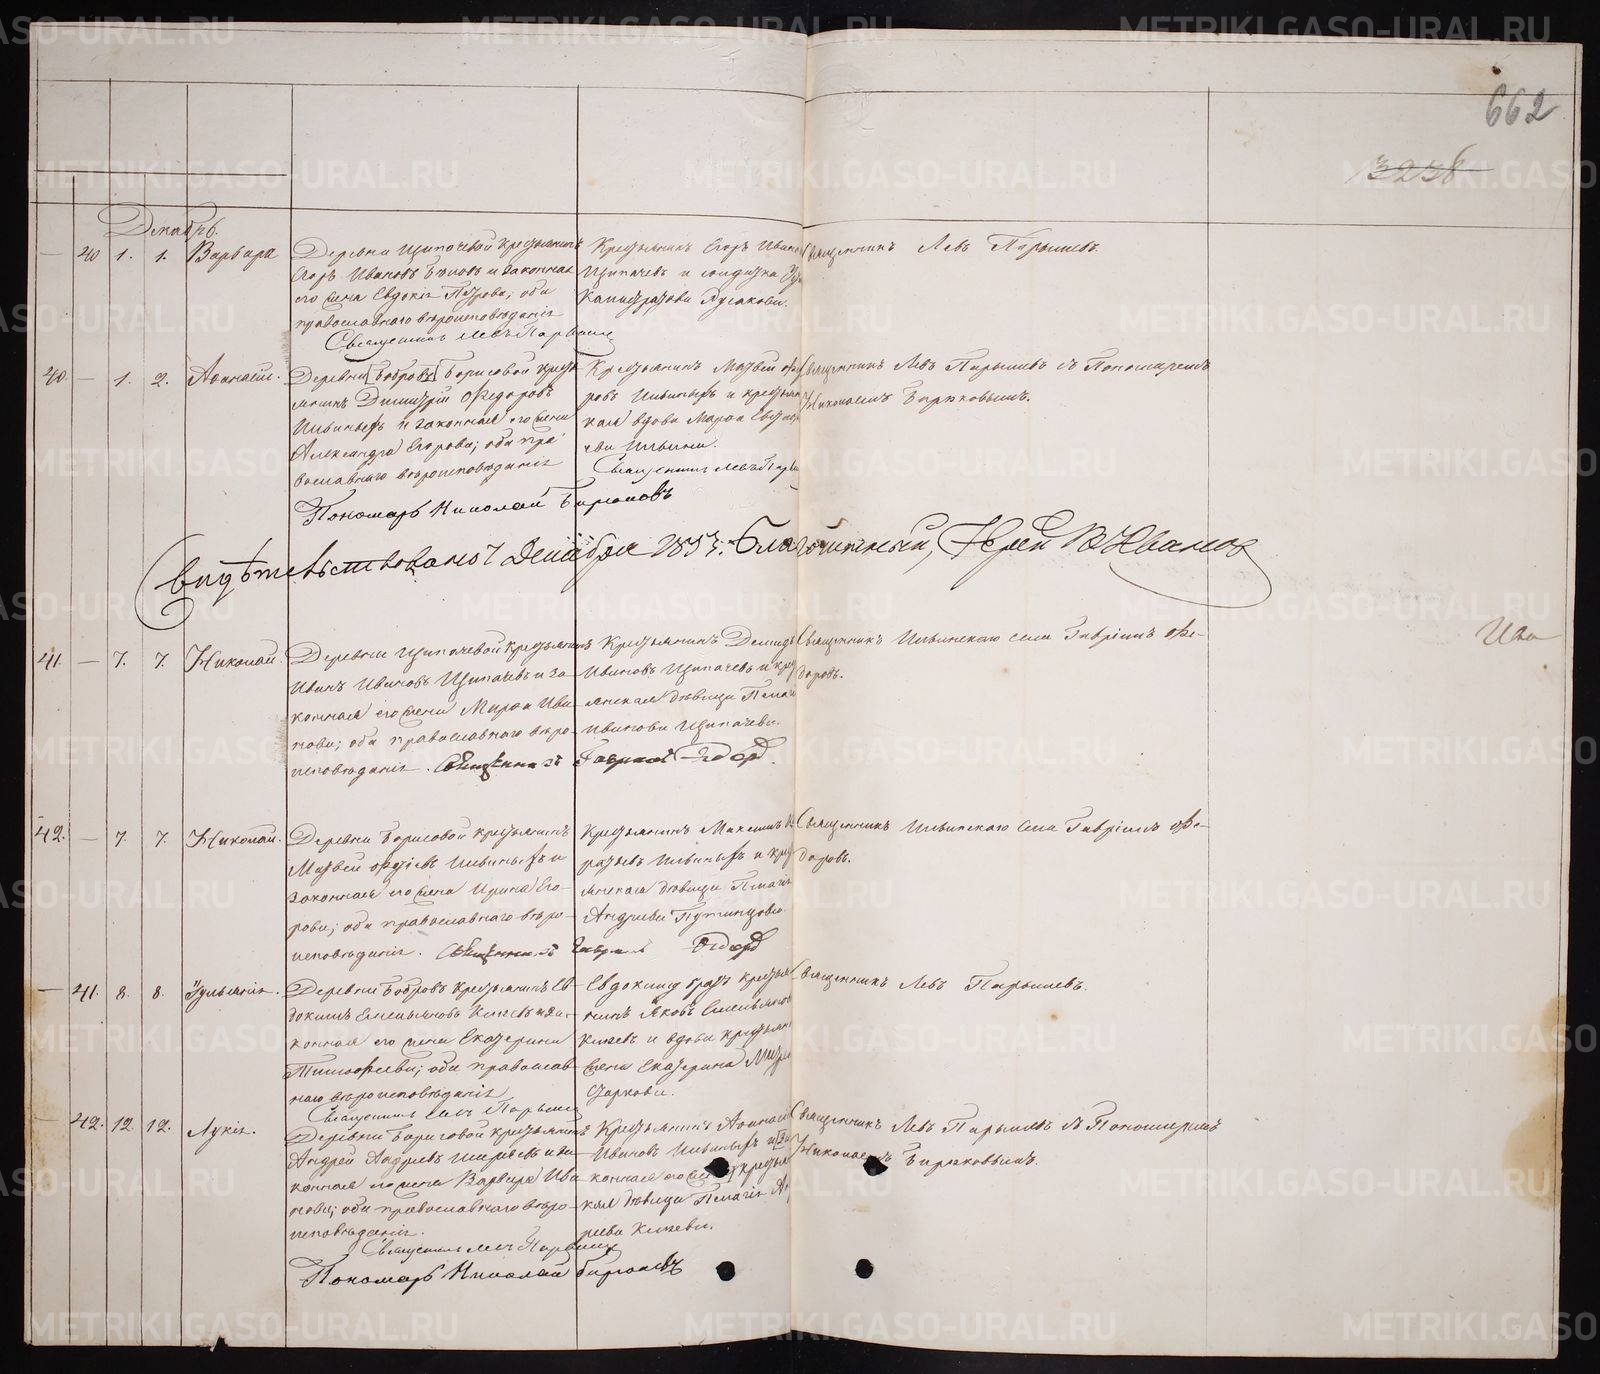 662
3238
Декабрь.
— 40 1. 1. Варвара
Деревни Щипачевой крестьянинъ
Егоръ Ивановъ и законная
его жена Евдокія Петрова; оба
православнаго вѣроисповѣданія
Священникъ Левъ Парышевъ
Крестьянинъ Егоръ Иванов
Щипачевъ и солдатка
Калистратова Русакова.
Священникъ Левъ Парышевъ.
40. — 1. 2. Аѳанасій.
Деревни [Бобровой] Борисовой кресть
янинъ Димитрій Ѳедоровъ
Ильиныхъ и законная его жена
Александра Егорова; оба пра
вославнаго вѣроисповѣданія
Пономарь Николай Бирюковъ
Крестьянинъ Матвей Ѳе
ровъ Ильиныхъ и крестьян
кая вдова Марѳа
ева Ильина.
Священникъ Левъ Пары
Священникъ Левъ Парышевъ съ Пономаремъ
Николаемъ Бирюковымъ.
Свидѣтельствовано 7 Декабря 1857. Благочинный, Іерей Ивановъ
41. — 7. 7. Николай.
Деревни Щипачевой крестьянинъ
Иванъ Ивановъ Щипачевъ и за-
конная его жена Марѳа Ива-
нова; оба православнаго вѣро-
исповѣданія. Священникъ Гавріилъ Ѳедоров
Крестьянинъ Демидъ
Ивановъ Щипачевъ и крес
янская дѣвица Пелаг
Иванова Щипачева.
Священникъ Ильинскаго села Гавріилъ Ѳе-
доровъ.
42. — 7. 7. Николай.
Деревни Борисовой крестьянинъ
Матвей Ильиныхъ и
законная его жена Ирина Его-
рова; оба православнаго вѣро-
исповѣданія. Священникъ Гавріилъ Ѳедоров
Крестьянинъ Максимъ
Ильиныхъ и крес
янская дѣвица Пелагія
Андреева Путинцова.
Священникъ Ильинскаго села Гавріилъ Ѳе-
доровъ.
— 41. 8. 8. Іуліанія.
Деревни Бобровъ крестьянинъ Ев
докимъ Емельяновъ Княжевъ и за-
конная его жена Екатерина
Тимоѳеева; оба православ
наго вѣроисповѣданія
Священникъ Левъ Парышев
Евдокиму братъ кресть
нинъ Яковъ Емельянов
Княжевъ и вдова крестьян
жена Екатерина
Старкова.
Священникъ Левъ Парышевъ.
— 42. 12. 12. Лукія.
Деревни Борисовой крестьянинъ
Андрей Андреевъ и за-
конная его жена Варвара Ива
нова; оба православнаго вѣро-
исповѣданія.
Священникъ Левъ Парышев
Пономарь Николай Бирюковъ
Крестьянинъ Аѳанасій
Ивановъ Ильиныхъ и [за
конная его жена] крестья
кая дѣвица Пелагія Ан
реева Княжева.
Священникъ Левъ Парышевъ съ Пономаремъ
Николаемъ Бирюковымъ.
METRIKI.GASO-URAL.RU